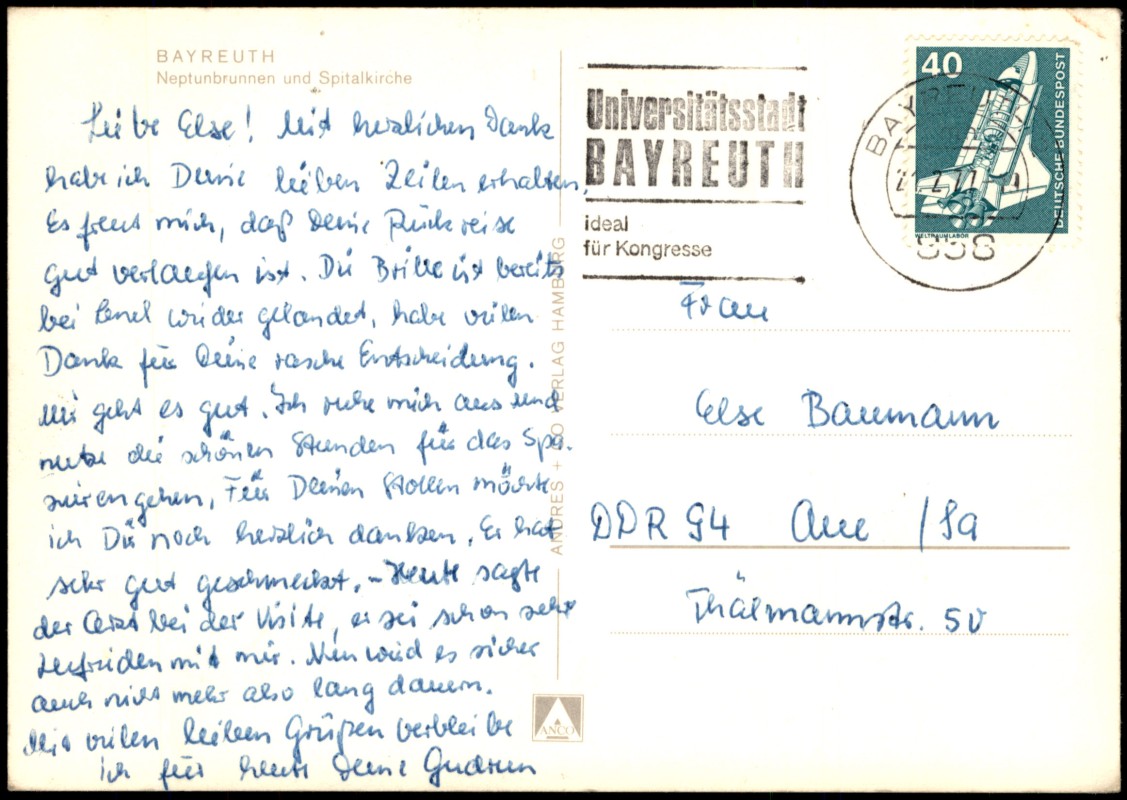 BAYREUTH
Neptunbrunnen und Spitalkirche
Liebe Else! Mit herzlichem Dank
habe ich Deine lieben Zeilen erhalten.
Es freut mich, daß Deine Rückreise
gut verlaufen ist. Die Brille ist bereits
bei wieder gelandet, habe vielen
Dank für Deine rasche Entscheidung.
Mir geht es gut. Ich ruhe mich aus und
nutze die schönen Stunden für das Spa-
zierengehen. Für Deinen Stollen möchte
ich Dir noch herzlich danken. Er hat
sehr gut geschmeckt. – Heute sagte
der Arzt bei der Visite, er sei schon sehr
zufrieden mit mir. Nun wird es sicher
auch nicht mehr also lang dauern.
Mit vielen lieben Grüßen verbleibe
ich für heute Deine Gudrun
ANDRES + CO VERLAG HAMBURG
ANCO
Universitätsstadt
BAYREUTH
ideal
für Kongresse
40
DEUTSCHE BUNDESPOST
WELTRAUMLABOR
BAYREUTH
2.77
858
Frau
Else Baumann
DDR 94 Aue /Sa
Thälmannstr. 50